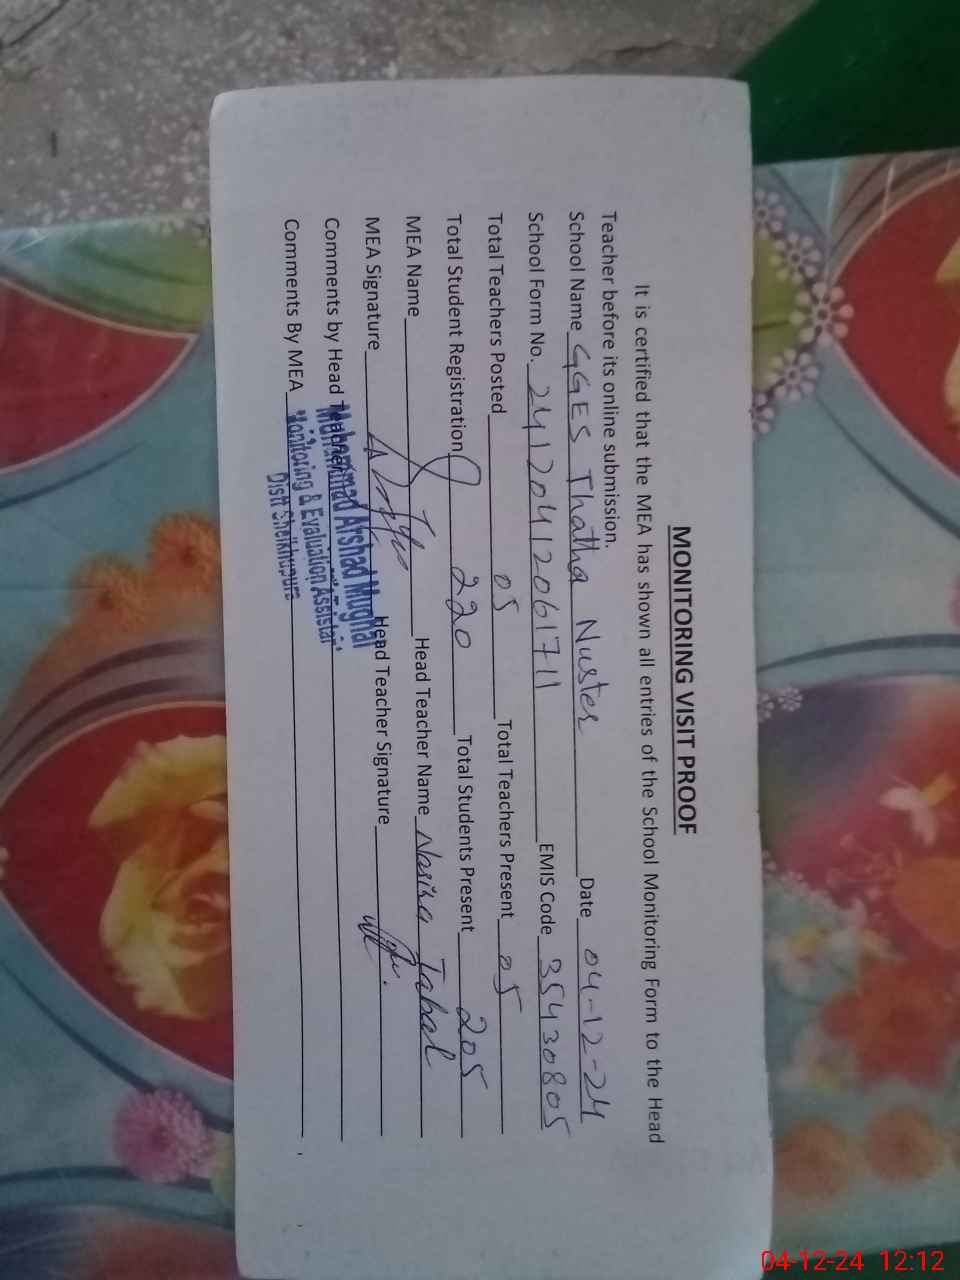 MONITORING VISIT PROOF
It is certified that the MEA has shown all entries of the School Monitoring Form to the Head
Teacher before its online submission.
School Name GGES Thatha Nuster Date 04-12-24
School Form No. 24120412061711 EMIS Code 35430805
Total Teachers Posted 05 Total Teachers Present 05
Total Student Registration 220 Total Students Present 205
MEA Name Head Teacher Name Nasira Jabal
MEA Signature Head Teacher Signature
Comments by Head Teacher
Comments By MEA
Muhammad Arshad Mughal
Monitoring & Evaluation Assistant
Distt Sheikhupura
04-12-24 12:12